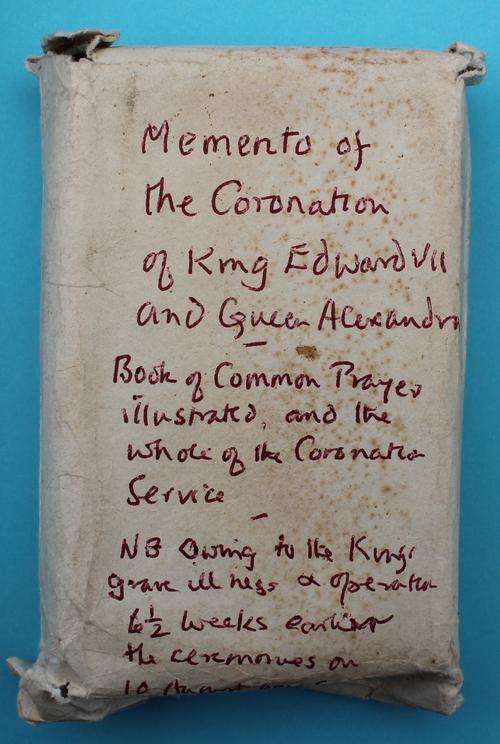 Memento of
the Coronation
of King Edward VII
and Queen Alexandra
Book of Common Prayer
illustrated, and the
whole of the Coronation
Service
NB Owing to the Kings
grave illness & operation
6½ weeks earlier
the ceremonies on
10 August